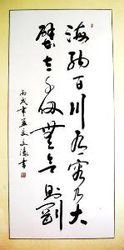 海納百川有容乃大
壁立千仞無欲則剛
丙戌年書